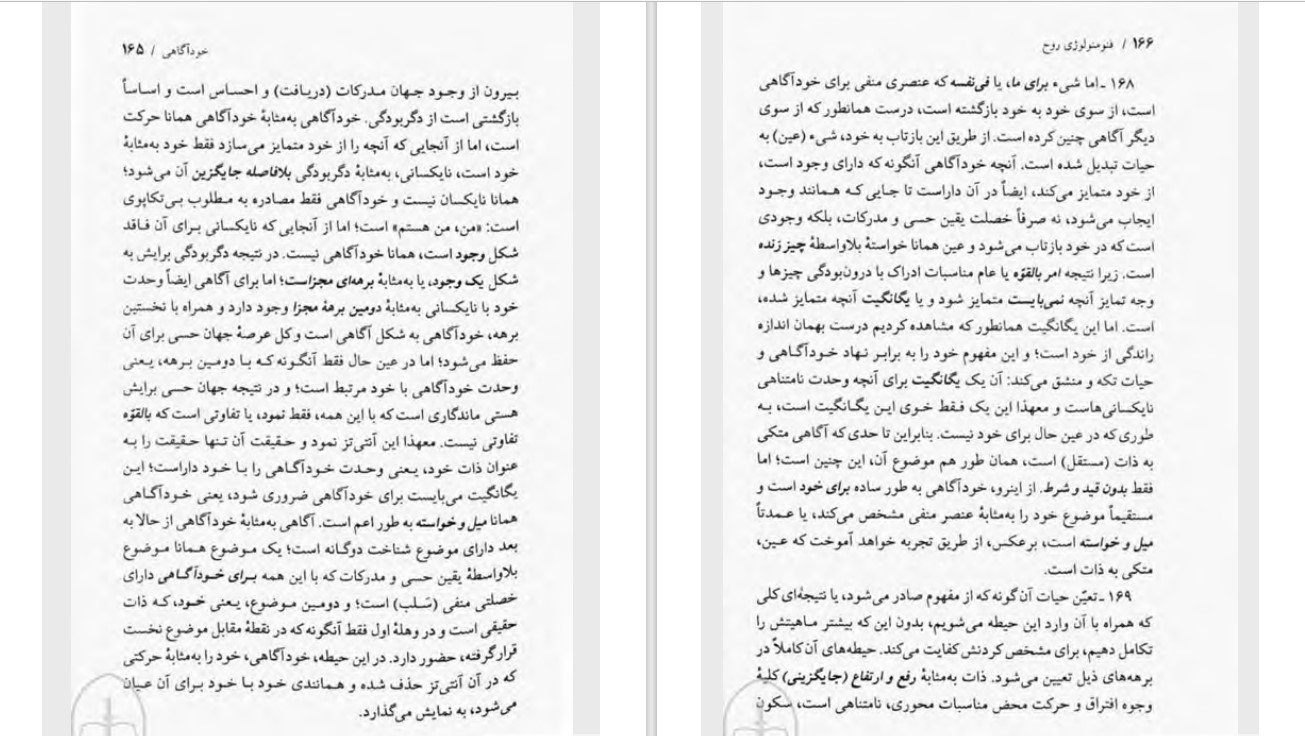 خودآگاهی / ۱۶۵
بیرون از وجود جهان مدرکات (دریافت) و احساس است و اساساً
بازگشتی است از دگربودگی. خودآگاهی به‌مثابهٔ خودآگاهی همانا حرکت
است، اما از آنجایی که آنچه را از خود متمایز می‌سازد فقط خود به‌مثابهٔ
خود است، نایکسانی، به‌مثابهٔ دگربودگی بلافاصله جایگزین آن می‌شود؛
همانا نایکسان نیست و خودآگاهی فقط مصادره به مطلوب بی‌تکاپوی
است: «من، من هستم» است؛ اما از آنجایی که نایکسانی برای آن فاقد
شکل وجود است، همانا خودآگاهی نیست. در نتیجه دگربودگی برایش به
شکل یک وجود، یا به‌مثابهٔ برهه‌ای مجزاست؛ اما برای آگاهی ایضاً وحدت
خود با نایکسانی به‌مثابهٔ دومین برههٔ مجزا وجود دارد و همراه با نخستین
برهه، خودآگاهی به شکل آگاهی است و کل عرصهٔ جهان حسی برای آن
حفظ می‌شود؛ اما در عین حال فقط آنگونه که با دومین برهه، یعنی
وحدت خودآگاهی با خود مرتبط است؛ و در نتیجه جهان حسی برایش
هستی ماندگاری است که با این همه، فقط نمود، یا تفاوتی است که بالقوّه
تفاوتی نیست. معهذا این آنتی‌تز نمود و حقیقت آن تنها حقیقت را به
عنوان ذات خود، یعنی وحدت خودآگاهی را با خود داراست؛ این
یگانگیت می‌بایست برای خودآگاهی ضروری شود، یعنی خودآگاهی
همانا میل و خواسته به طور اعم است. آگاهی به‌مثابهٔ خودآگاهی از حالا به
بعد دارای موضوع شناخت دوگانه است؛ یک موضوع همانا موضوع
بلاواسطهٔ یقین حسی و مدرکات که با این همه برای خودآگاهی دارای
خصلتی منفی (سَلب) است؛ و دومین موضوع، یعنی خود، که ذات
حقیقی است و در وهلهٔ اول فقط آنگونه که در نقطهٔ مقابل موضوع نخست
قرار گرفته، حضور دارد. در این حیطه، خودآگاهی، خود را به‌مثابهٔ حرکتی
که در آن آنتی‌تز حذف شده و همانندی خود با خود برای آن عیان
می‌شود، به نمایش می‌گذارد.
۱۶۶ / فنومنولوژی روح
۱۶۸ ـ اما شیء برای ما، یا فی‌نفسه که عنصری منفی برای خودآگاهی
است، از سوی خود به خود بازگشته است، درست همانطور که از سوی
دیگر آگاهی چنین کرده است. از طریق این بازتاب به خود، شیء (عین) به
حیات تبدیل شده است. آنچه خودآگاهی آنگونه که دارای وجود است،
از خود متمایز می‌کند، ایضاً در آن داراست تا جایی که همانند وجود
ایجاب می‌شود، نه صرفاً خصلت یقین حسی و مدرکات، بلکه وجودی
است که در خود بازتاب می‌شود و عین همانا خواستهٔ بلاواسطهٔ چیز زنده
است. زیرا نتیجه امر بالقوّه یا عام مناسبات ادراک با درون‌بودگی چیزها و
وجه تمایز آنچه نمی‌بایست متمایز شود و یا یگانگیت آنچه متمایز شده،
است. اما این یگانگیت همانطور که مشاهده کردیم درست بهمان اندازه
راندگی از خود است؛ و این مفهوم خود را به برابر نهاد خودآگاهی و
حیات تکه و منشق می‌کند: آن یک یگانگیت برای آنچه وحدت نامتناهی
نایکسانی‌هاست و معهذا این یک فقط خوی این یگانگیت است، به
طوری که در عین حال برای خود نیست. بنابراین تا حدی که آگاهی متکی
به ذات (مستقل) است، همان طور هم موضوع آن، این چنین است؛ اما
فقط بدون قید و شرط. از اینرو، خودآگاهی به طور ساده برای خود است و
مستقیماً موضوع خود را به‌مثابهٔ عنصر منفی مشخص می‌کند، یا عمدتاً
میل و خواسته است، برعکس، از طریق تجربه خواهد آموخت که عین،
متکی به ذات است.
۱۶۹ ـ تعیّن حیات آن گونه که از مفهوم صادر می‌شود، یا نتیجه‌ای کلی
که همراه با آن وارد این حیطه می‌شویم، بدون این که بیشتر ماهیتش را
تکامل دهیم، برای مشخص کردنش کفایت می‌کند. حیطه‌های آن کاملاً در
برهه‌های ذیل تعیین می‌شود. ذات به‌مثابهٔ رفع و ارتفاع (جایگزینی) کلیهٔ
وجوه افتراق و حرکت محض مناسبات محوری، نامتناهی است، سکون